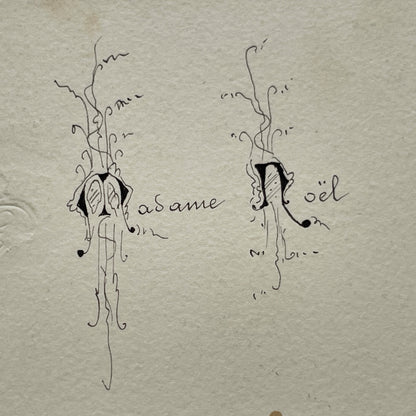 Madame Noël